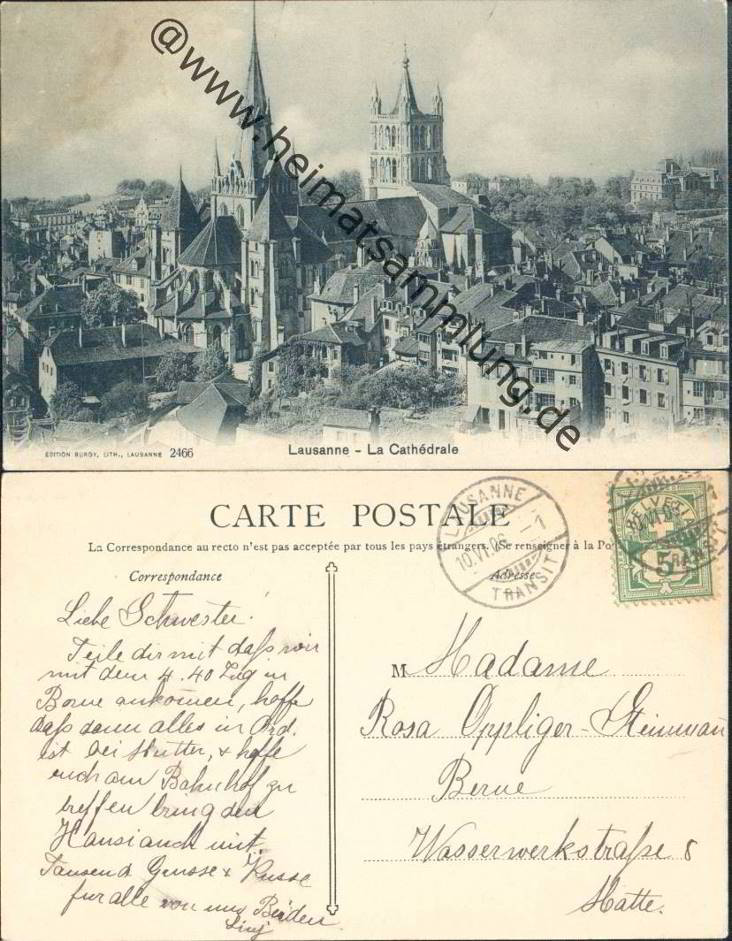 @www.heimatsammlung.de
EDITION BURGY, LITH., LAUSANNE 2466
Lausanne - La Cathédrale
CARTE POSTALE
La Correspondance au recto n'est pas acceptée par tous les pays étrangers. (Se renseigner à la Po
Correspondance
Adresse
LAUSANNE
10.VI.06 -1
TRANSIT
HELVETIA
5
10.VI.06
TRANSIT
Liebe Schwester!
Teile dir mit daß wir
mit dem 4.40 Zug in
Berne ankommen, hoffe
daß dann alles in Ord.
ist bei Mutter, & hoffe
euch am Bahnhof zu
treffen bring den
Hansi auch mit.
Tausend Grüsse & Küsse
für alle von uns Beiden
M Madame
Rosa Oppliger-Steinman
Berne
Wasserwerkstraße 8
Matte.